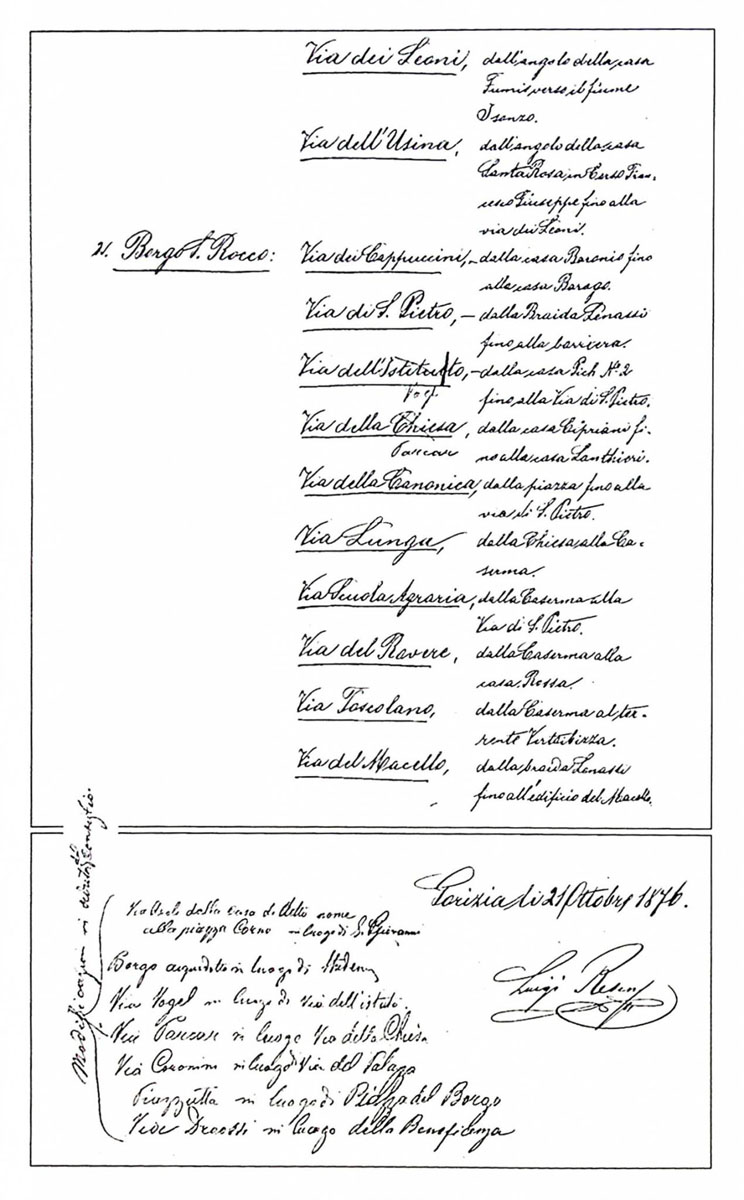 Via dei Leoni, dall'angolo della casa
Fumis verso il fiume
Isonzo.
Via dell'Usina, dall'angolo della casa
Santa Rosa, in Corso Fran-
cesco Giuseppe fino alla
via dei Leoni.
21. Borgo S. Rocco: Via dei Cappuccini, - dalla casa Baronio fino
alla casa Barago.
Via di S. Pietro, - dalla Braida Lenassi
fino alla barriera.
Via dell'Istituto, - dalla casa Pich N.º 2
Vogl.
fino alla Via di S. Pietro.
Via della Chiesa, dalla casa Cipriani fi-
Parcar
no alla casa Lanthieri.
Via della Canonica, dalla piazza fino alla
via di S. Pietro.
Via Lunga, dalla Chiesa alla Ca-
serma.
Via Scuola Agraria, dalla Caserma alla
Via di S. Pietro.
Via del Rovere, dalla Caserma alla
casa Rossa.
Via Toscolano, dalla Caserma al tor-
rente Vertoibizza.
Via del Macello, dalla braida Lenassi
fino all'edificio del Macello.
Modificazioni in seduta del Consiglio.
Gorizia li 21 Ottobre 1876.
Via Ascoli dalla casa di detto nome
alla piazza Corno in luogo di S. Giovanni
Borgo acquidotto in luogo di
Luigi Resen
Via Vogel in luogo di Via dell'istituto.
Via Parcar in luogo Via della Chiesa
Via Coronini in luogo di Via del Palazzo
Piazzutta in luogo di Piazza del Borgo
Vide Dreossi in luogo della Beneficenza